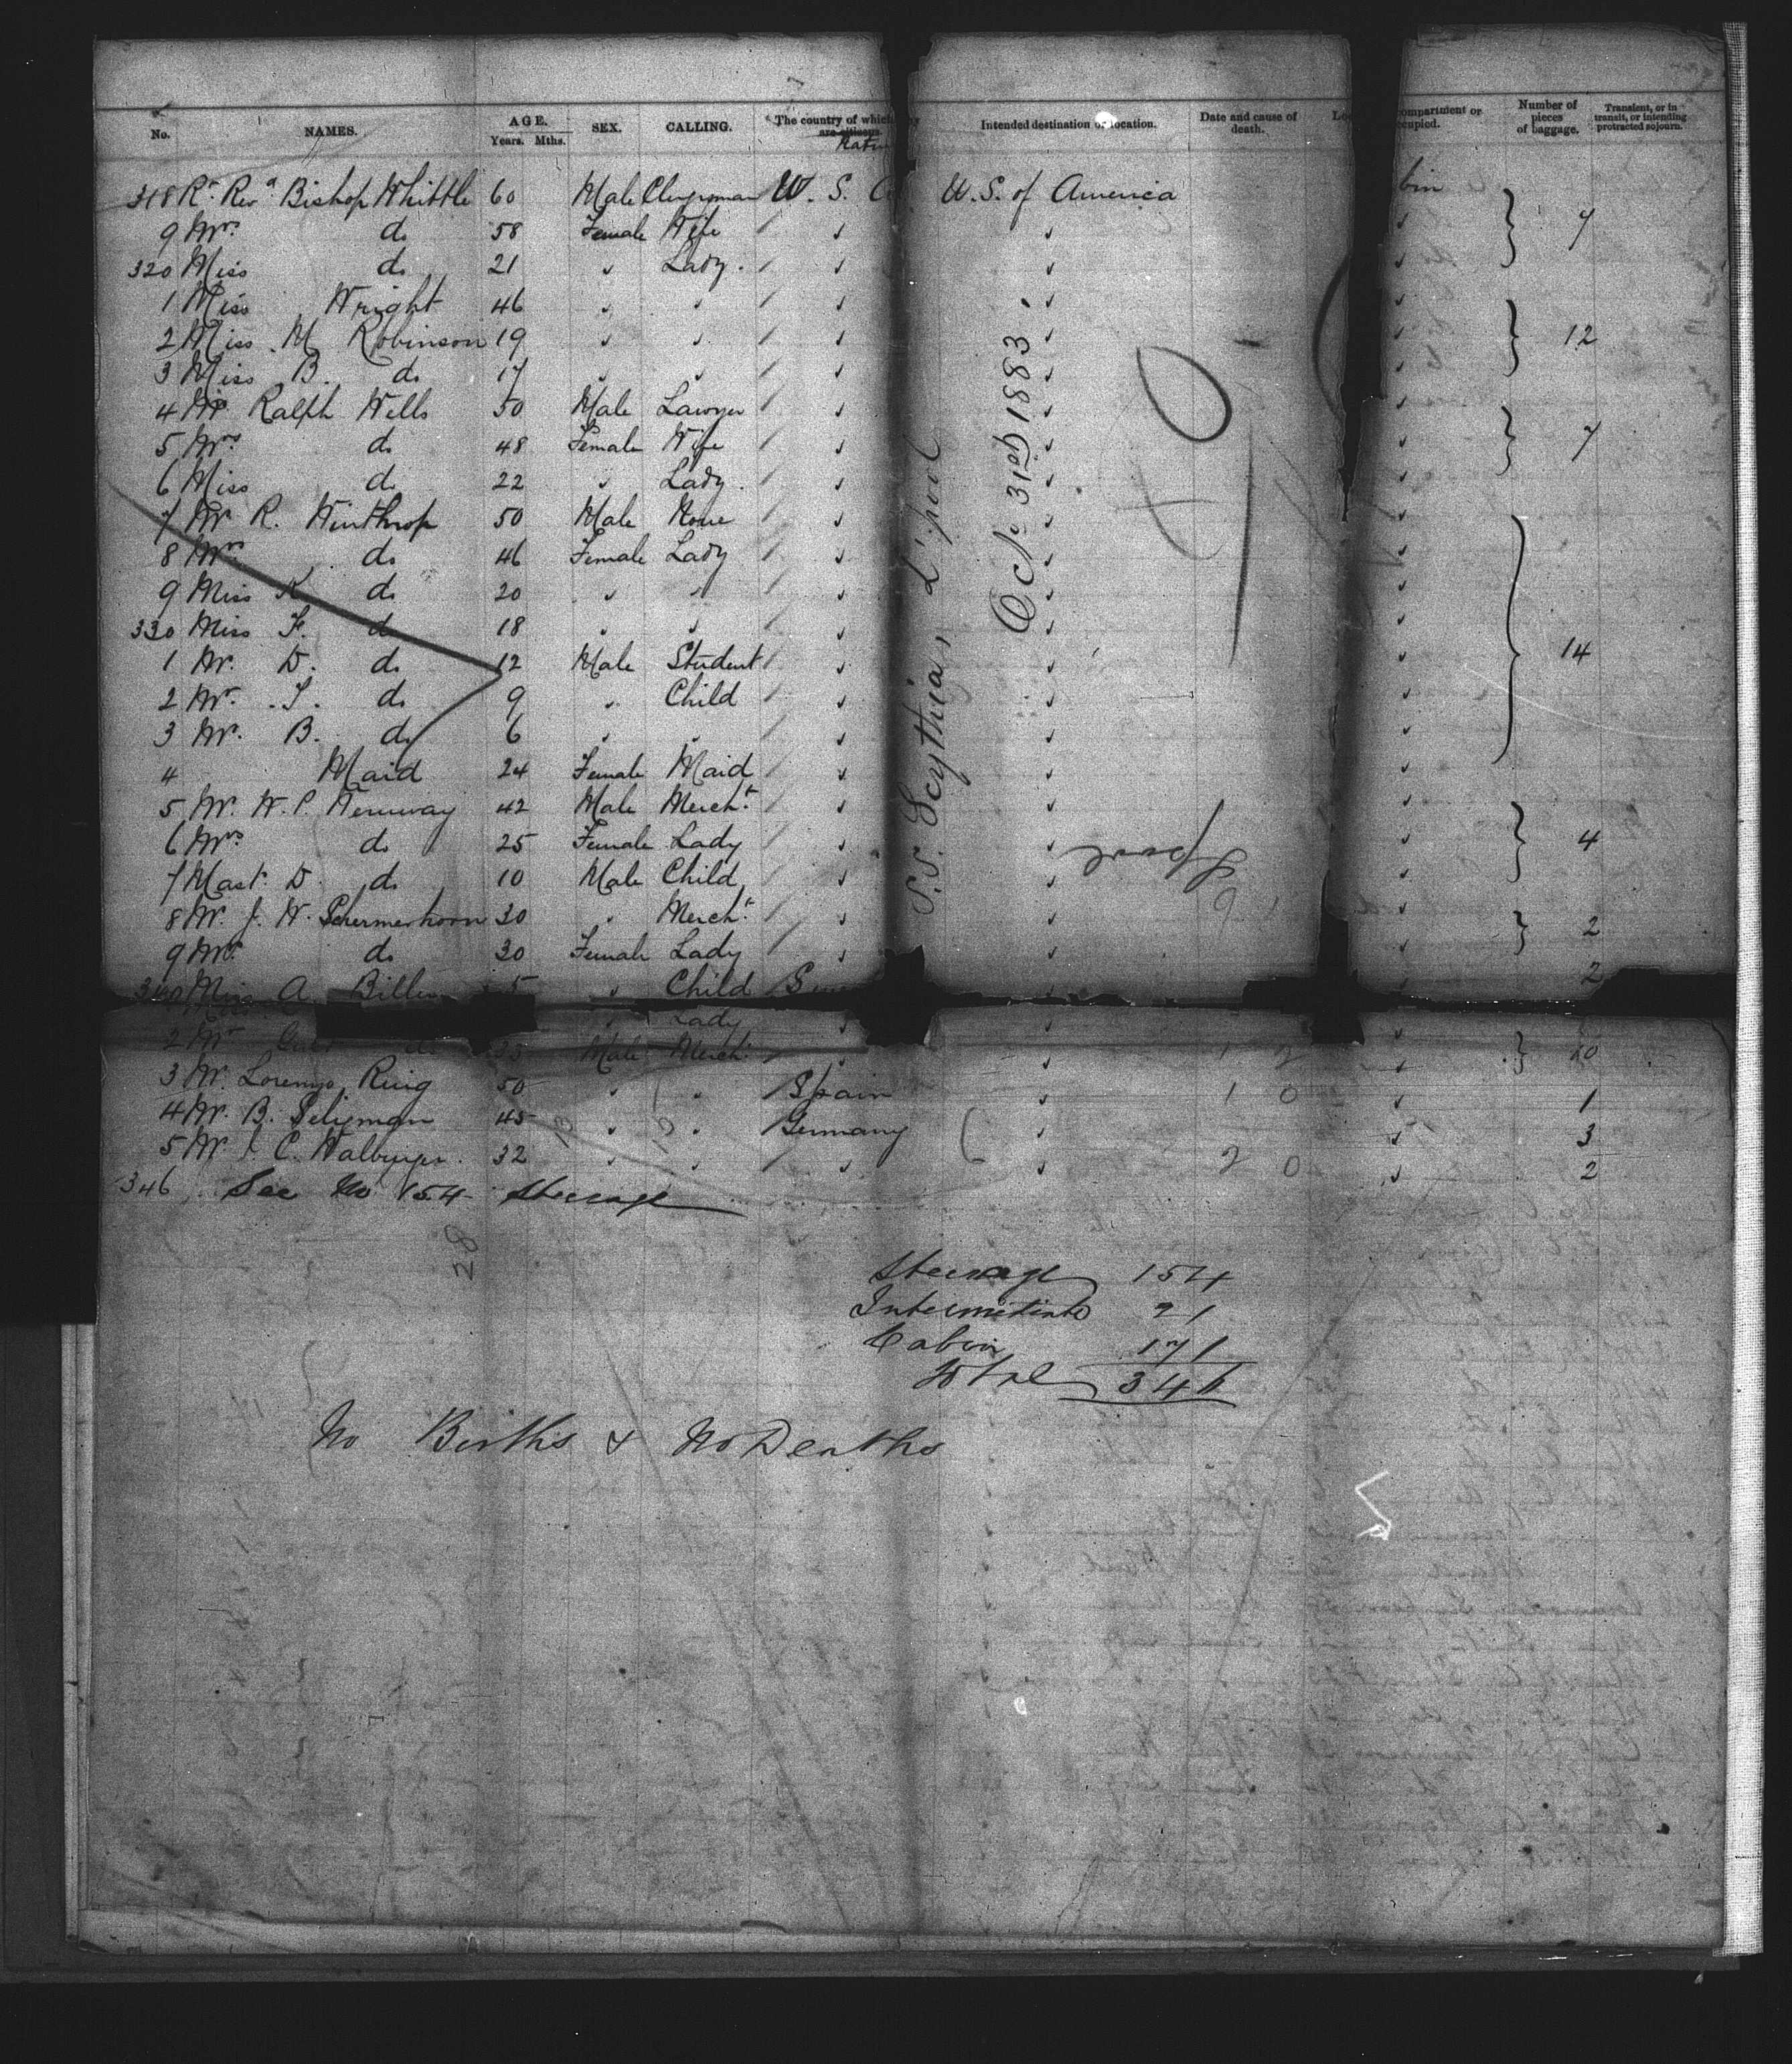 No. NAMES. AGE. Years. Mths. SEX. CALLING. The country of which are citizens. Intended destination or location. Date and cause of death. compartment or occupied. Number of pieces of baggage. Transient, or in transit, or intending protracted sojourn.
318 Rt Revd Bishop Whittle 60 Male Clergyman U. S. U.S. of America bin
9 Mrs do 58 Female Wife 7
320 Miss do 21 " Lady
1 Miss Wright 46 " "
2 Miss M Robinson 19 " " 12
3 Miss B. do 17 " "
4 Mr Ralph Wells 50 Male Lawyer
5 Mrs do 48 Female Wife 7
6 Miss do 22 " Lady
7 Mr R. Winthrop 50 Male None
8 Mrs do 46 Female Lady
9 Miss K do 20 " "
330 Miss F. do 18 " "
1 Mr. D. do 12 Male Student 14
2 Mr. do 9 " Child
3 Mr. B. do 6 " "
4 Maid 24 Female Maid
5 Mr. W. P. 42 Male Mercht
6 Mrs do 25 Female Lady 4
7 Mast. D. do 10 Male Child
8 Mr. J. W. Schermerhorn 30 " Mercht
9 Mrs do 30 Female Lady 2
340 Miss A. 5 " Child 2
Lady
2 Mr do 35 Male Mercht 10
3 Mr. Lorenzo Ruig 50 " " Spain 1
4 Mr. B. Seligman 45 " " Germany 3
5 Mr. C. 32 " " " 2
346 See No 154 Steerage
S.S. Scythia, L'pool
Oct. 31st 1883
L'pool
28
Steerage 154
Intermediate 21
Cabin 171
Total 346
No Births & No Deaths